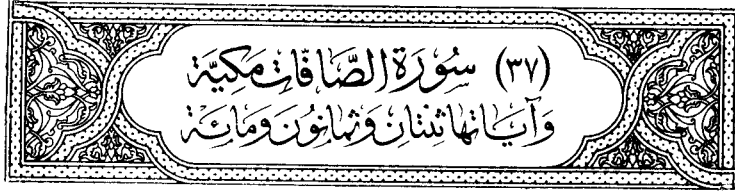 (٣٧) سُورَةُ الصَّافَّاتِ مَكِيَّة
وَآيَاتُهَا ثِنْتَانِ وَثَمَانُونَ وَمِائَة